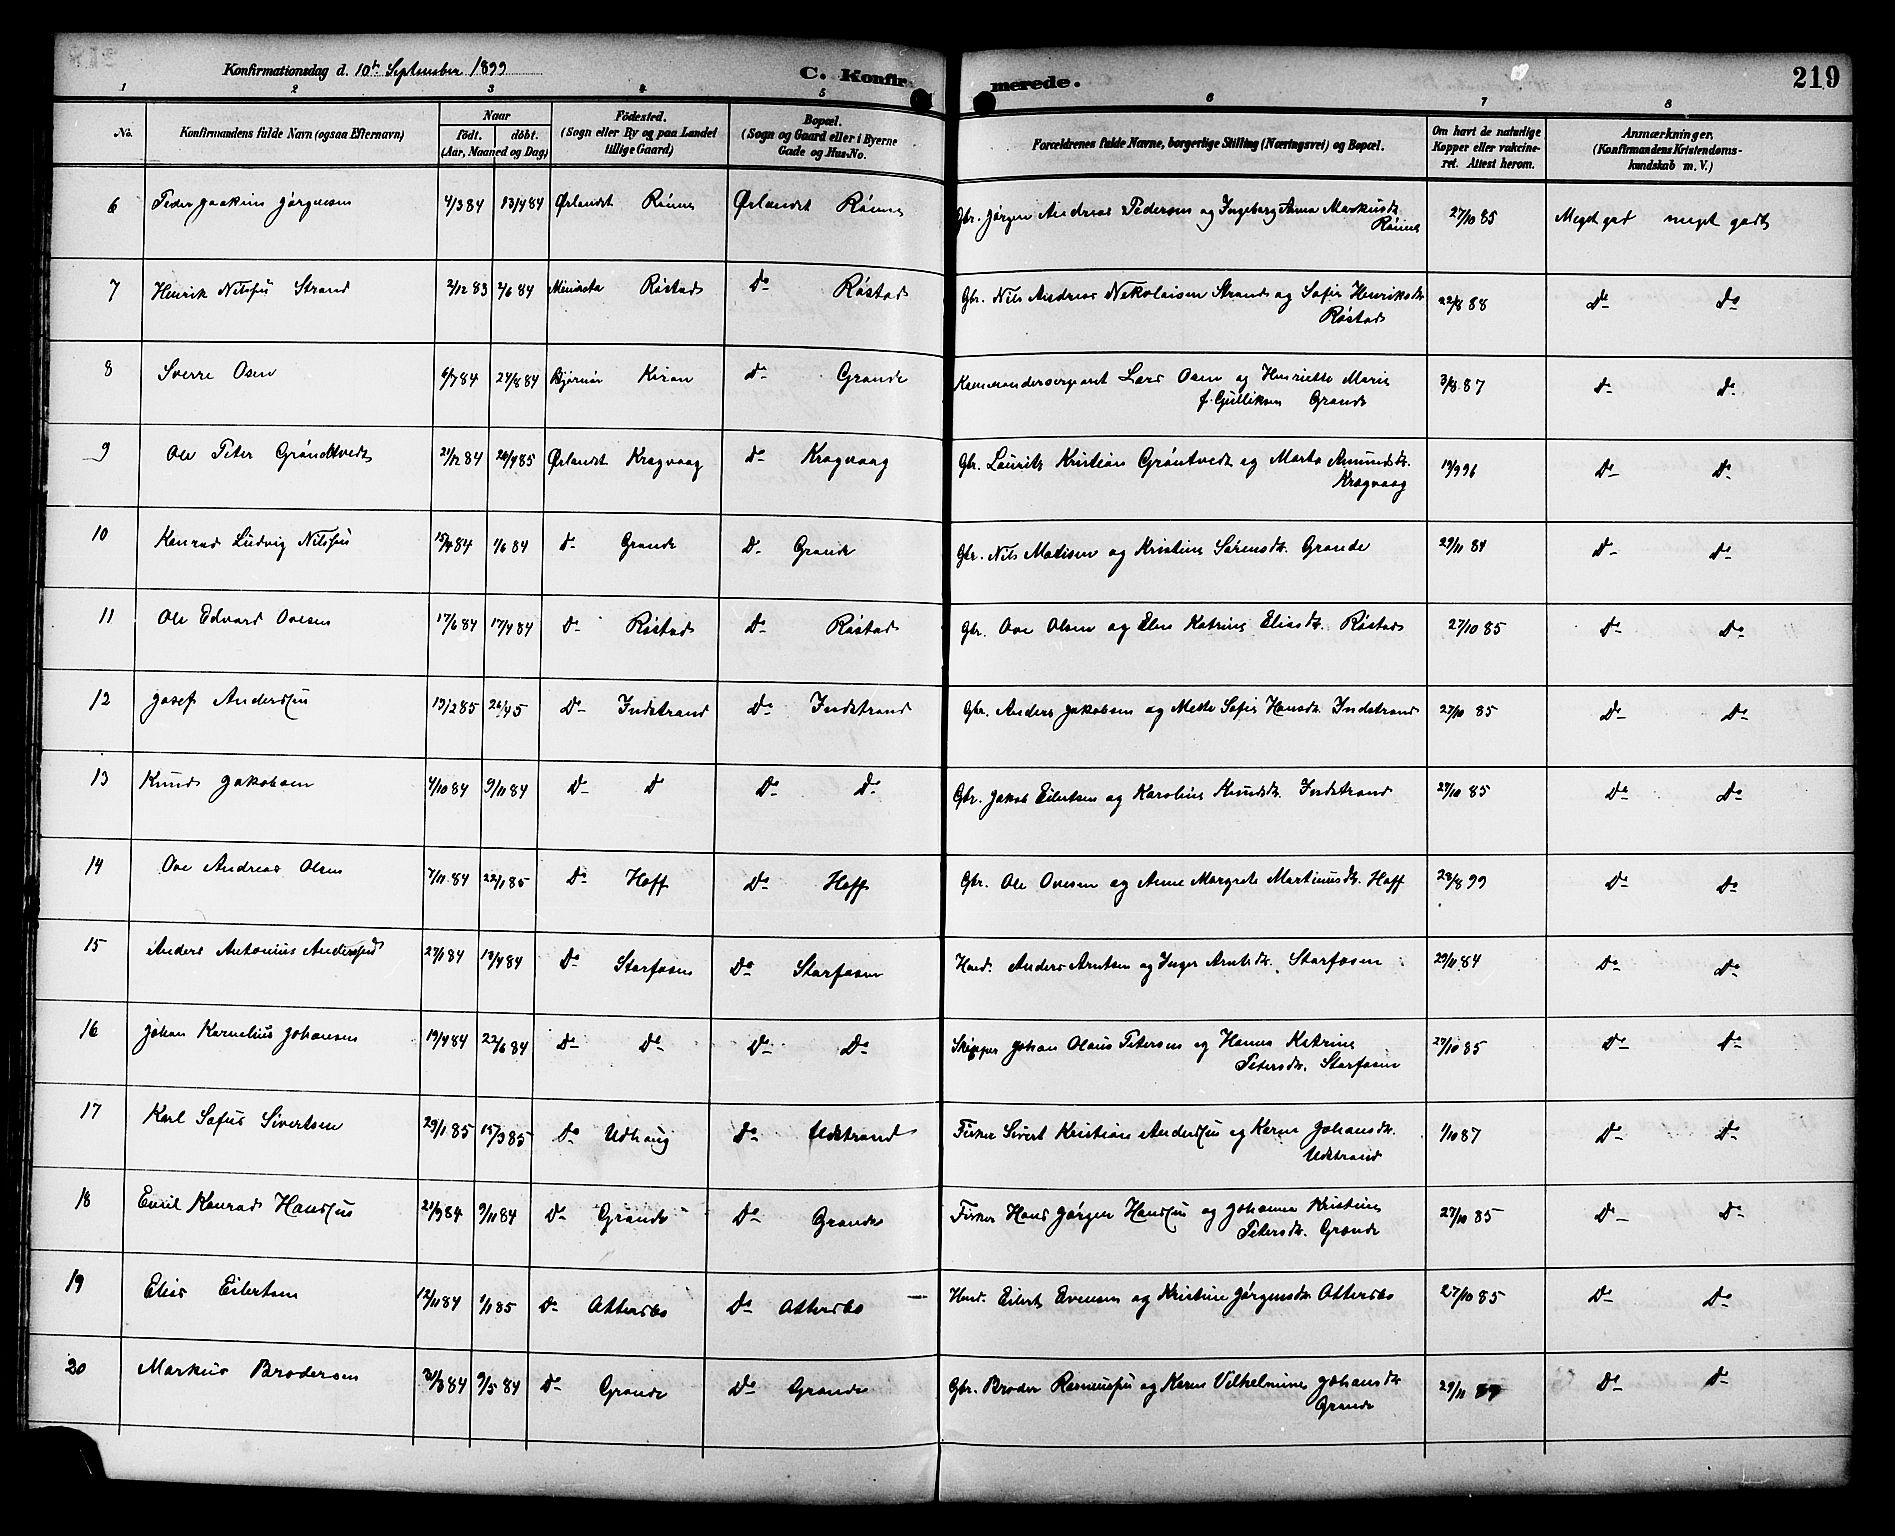 Konfirmationsdag d. 10de September 1899
C. Konfirmerede.
219
1 2 3 4 5 6 7 8
No. Konfirmandens fulde Navn (ogsaa Efternavn) Naar födt. döbt. (Aar, Maaned og Dag) Födested. (Sogn eller By og paa Landet tillige Gaard) Bopæl. (Sogn og Gaard eller i Byerne Gade og Hus-No. Forældrenes fulde Navne, borgerlige Stilling (Næringsvei) og Bopæl. Om havt de naturlige Kopper eller vakcineret. Attest herom. Anmærkninger. (Konfirmandens Kristendomskundskab m. V.)
6 Peder Joakim Jørgensen 4/3 84 13/4 84 Ørlandet Rønne Ørlandet Rønne Gbr. Jørgen Andreas Pedersen og Ingeborg Anna Markusdtr. Rønne 27/10 85 Meget god meget godt
7 Henrik Nilssen Strand 2/12 83 2/6 84 Røstad Do Røstad Gbr. Nils Andreas Nikolaisen Strand og Sofie Henriksdtr. Røstad 22/8 88 Do Do
8 Sverre Osen 24/8 84 Bjørnør Kiran Do Grande Kommandersergeant Lars Osen og Henriette Marie f. Gulliksen Grande 3/8 87 Do Do
9 Ole Peter Gröndtvedt 21/12 84 26/4 85 Ørlandet Kragvaag Do Kragvaag Gbr. Laurits Kristian Gröntvedt og Marta Amundsdtr. Kragvaag 19/9 96 Do Do
10 Konrad Ludvig Nilssen 15/4 84 1/6 84 Do Grande Do Grande Gbr. Nils Matisen og Kristine Sørensdtr. Grande 29/11 84 Do Do
11 Ole Edvard Ovesen 17/6 84 Do Røstad Do Røstad Gbr. Ove Olsen og Elen Katrine Eliasdtr. Røstad 27/10 85 Do Do
12 Josef Anderssen 13/2 85 26/4 5 Do Indstrand Do Indstrand Gbr. Anders Jakobsen og Mette Sofie Hansdtr. Indstrand 27/10 85 Do Do
13 Knud Jakobsen 4/10 84 9/11 84 Do Do Do Do Gbr. Jakob Eilertsen og Karoline Knudsdtr. Indstrand 27/10 85 Do Do
14 Ove Andreas Olsen 7/11 84 22/1 85 Do Hoff Do Hoff Gbr. Ole Ovesen og Anne Margrete Martinusdtr. Hoff 28/8 99 Do Do
15 Anders Antonius Anderssen 27/1 84 13/4 84 Do Storfosen Do Storfosen Hmd. Anders Arntsen og Inger Arntsdtr. Storfosen 29/11 84 Do Do
16 Johan Kornelius Johansen 19/4 84 22/6 84 Do Do Do Do Skipper Johan Olaus Petersen og Hanna Katrine Petersdtr. Storfosen 27/10 85 Do Do
17 Karl Sofus Sivertsen 29/1 85 15/3 85 Do Udhaug Do Udstrand Fisker Sivert Kristian Anderssen og Karen Johansdtr. Udstrand 1/10 87 Do Do
18 Emil Konrad Hanssen 21/9 84 9/11 84 Do Grande Do Grande Fisker Hans Jørgen Hanssen og Johanna Kristine Petersdtr. Grande 27/10 85 Do Do
19 Elias Eilertsen 12/11 84 1/1 85 Do Ottersbo Do Ottersbo Hmd. Eilert Evensen og Kristine Jørgensdtr. Ottersbo 27/10 85 Do Do
20 Markus Brodersen 9/5 84 Do Grande Do Grande Gbr. Broder Rasmussen og Karen Vilhelmine Johansdtr. Grande 29/11 Do Do